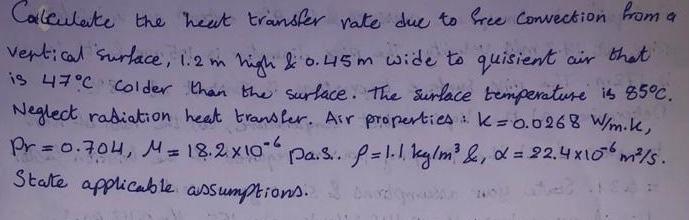 Calculate the heat transfer rate due to free convection from a
vertical surface, 1.2 m high & 0.45 m wide to quisient air that
is 47°C colder than the surface. The surface temperature is 85°C.
Neglect radiation heat transfer. Air properties : K = 0.0268 W/m.k,
Pr = 0.704, M = 18.2 x 10^-6 pa.s. ρ = 1.1 kg/m³ &, α = 22.4 x 10^-6 m²/s.
State applicable assumptions.